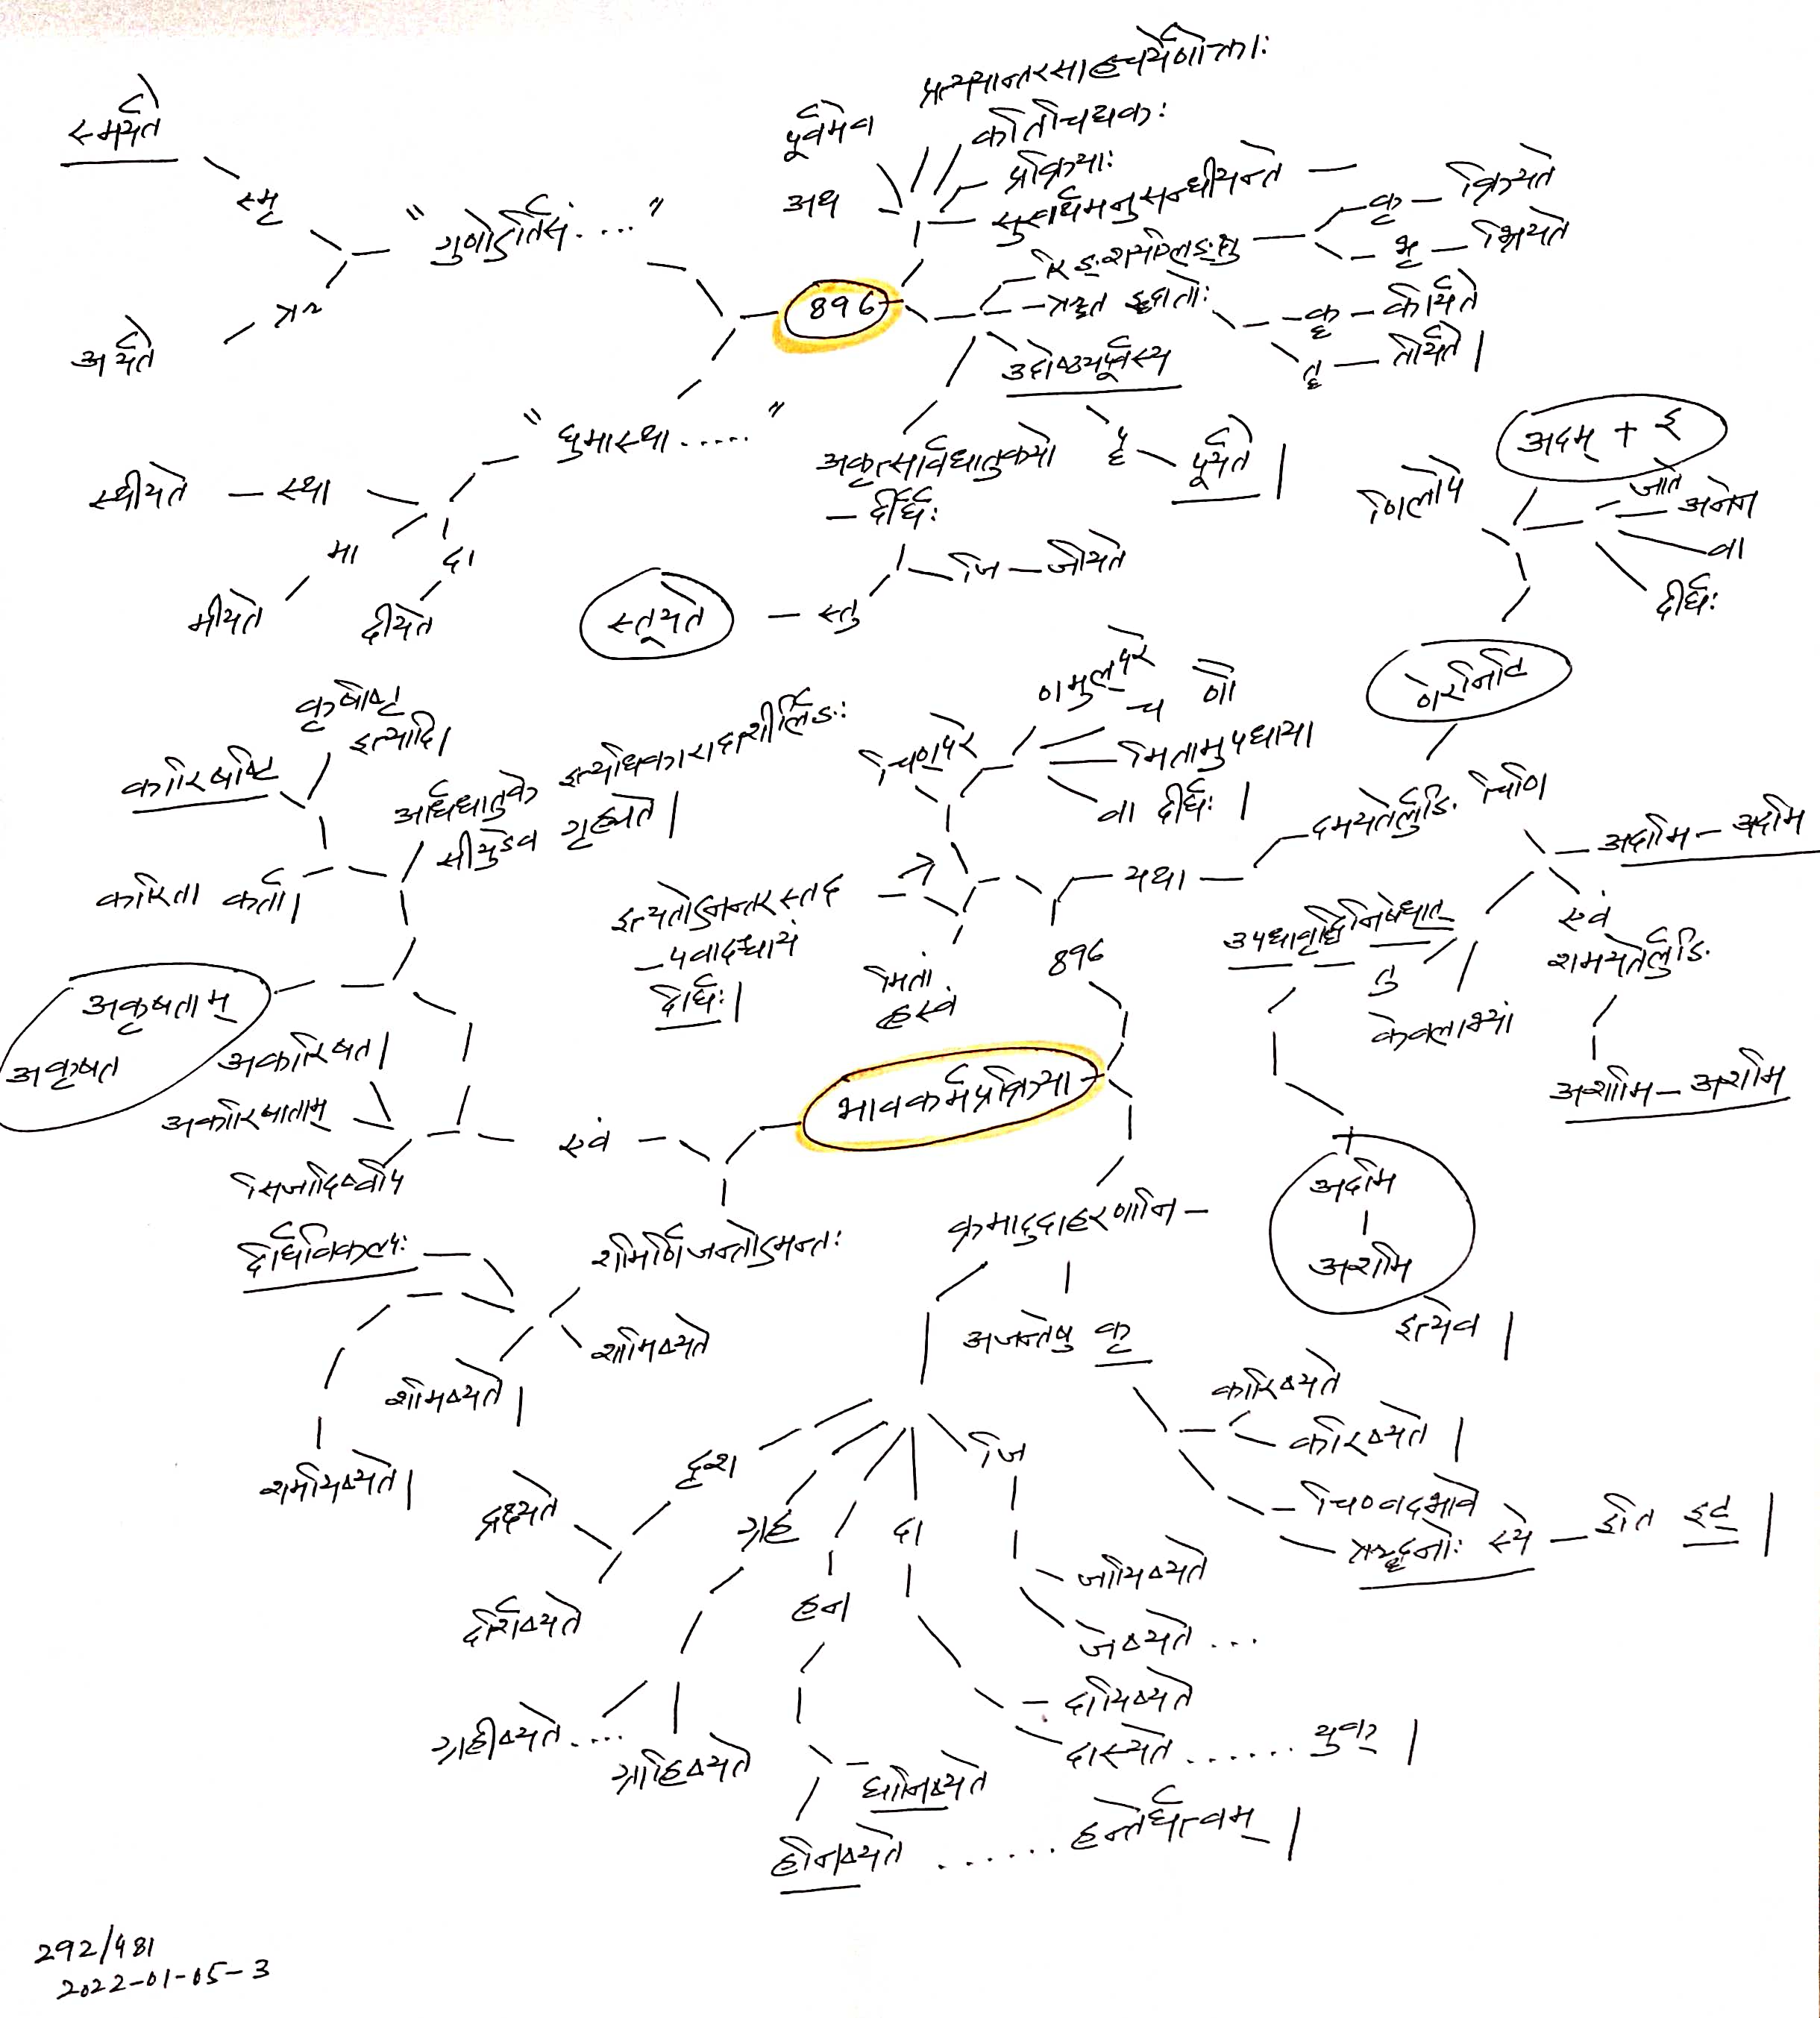 स्मर्यते
स्मृ
"गुणोऽर्तिसं...."
ऋ
अर्यते
पूर्वमेव
अथ
प्रत्ययान्तरसाहचर्येणोक्ताः
कतिचिद्यकः
प्रक्रियाः
सुखार्थमनुसन्धीयन्ते —
रिङ्शयग्लिङ्क्षु
कृ — क्रियते
भृ — भ्रियते
ऋत इद्धातोः
कॄ — कीर्यते
तॄ — तीर्यते|
उदोष्ठ्यपूर्वस्य
पॄ — पूर्यते|
896
"घुमास्था....."
स्थीयते — स्था
मा
मीयते
दा
दीयते
अकृत्सार्वधातुकयो
— र्दीर्घः
जि — जीयते
स्तूयते — स्तु
अदम् + इ
णिलोपे
जाते
अनेन
वा
दीर्घः
णेरनिटि
कृषीष्ट
इत्यादि|
कारिषीष्ट
कारिता कर्ता|
आर्धधातुके इत्यधिकारादाशीर्लिङः
सीयुडेव गृह्यते|
चिण्परे
णमुल्परे
च णौ
मितामुपधाया
वा दीर्घः|
इत्यतोऽनन्तरस्तद
— पवादश्चायं
दीर्घः|
मितां
ह्रस्वं
यथा —
दमयतेर्लुङि चिणि
अदामि — अदमि
एवं
शमयतेर्लुङि
अशामि — अशमि
उपधावृद्धिनिषेधात्
तु
केवलाभ्यां
896
अकृषाताम्
अकृषत
अकारिषत|
अकारिषाताम्
सिजादिष्वपि
एवं
भावकर्मप्रक्रिया
अदमि
अशमि
इत्येव|
दीर्घविकल्पः
शमिर्णिजन्तोऽमन्तः
शामिष्यते
शमिष्यते|
शमयिष्यते|
क्रमादुदाहरणानि —
अजन्तेषु कृ
कारिष्यते
करिष्यते|
चिण्वद्भावे
ऋद्धनोः स्ये — इति इट्|
दृश
द्रक्ष्यते
दर्शिष्यते
ग्रह
ग्रहीष्यते....
ग्राहिष्यते
हन
घानिष्यते
हनिष्यते ...... हन्तेर्घत्वम्|
दा
दायिष्यते
दास्यते ...... युक्|
जि
जायिष्यते
जेष्यते...
292/481
2022-01-05-3